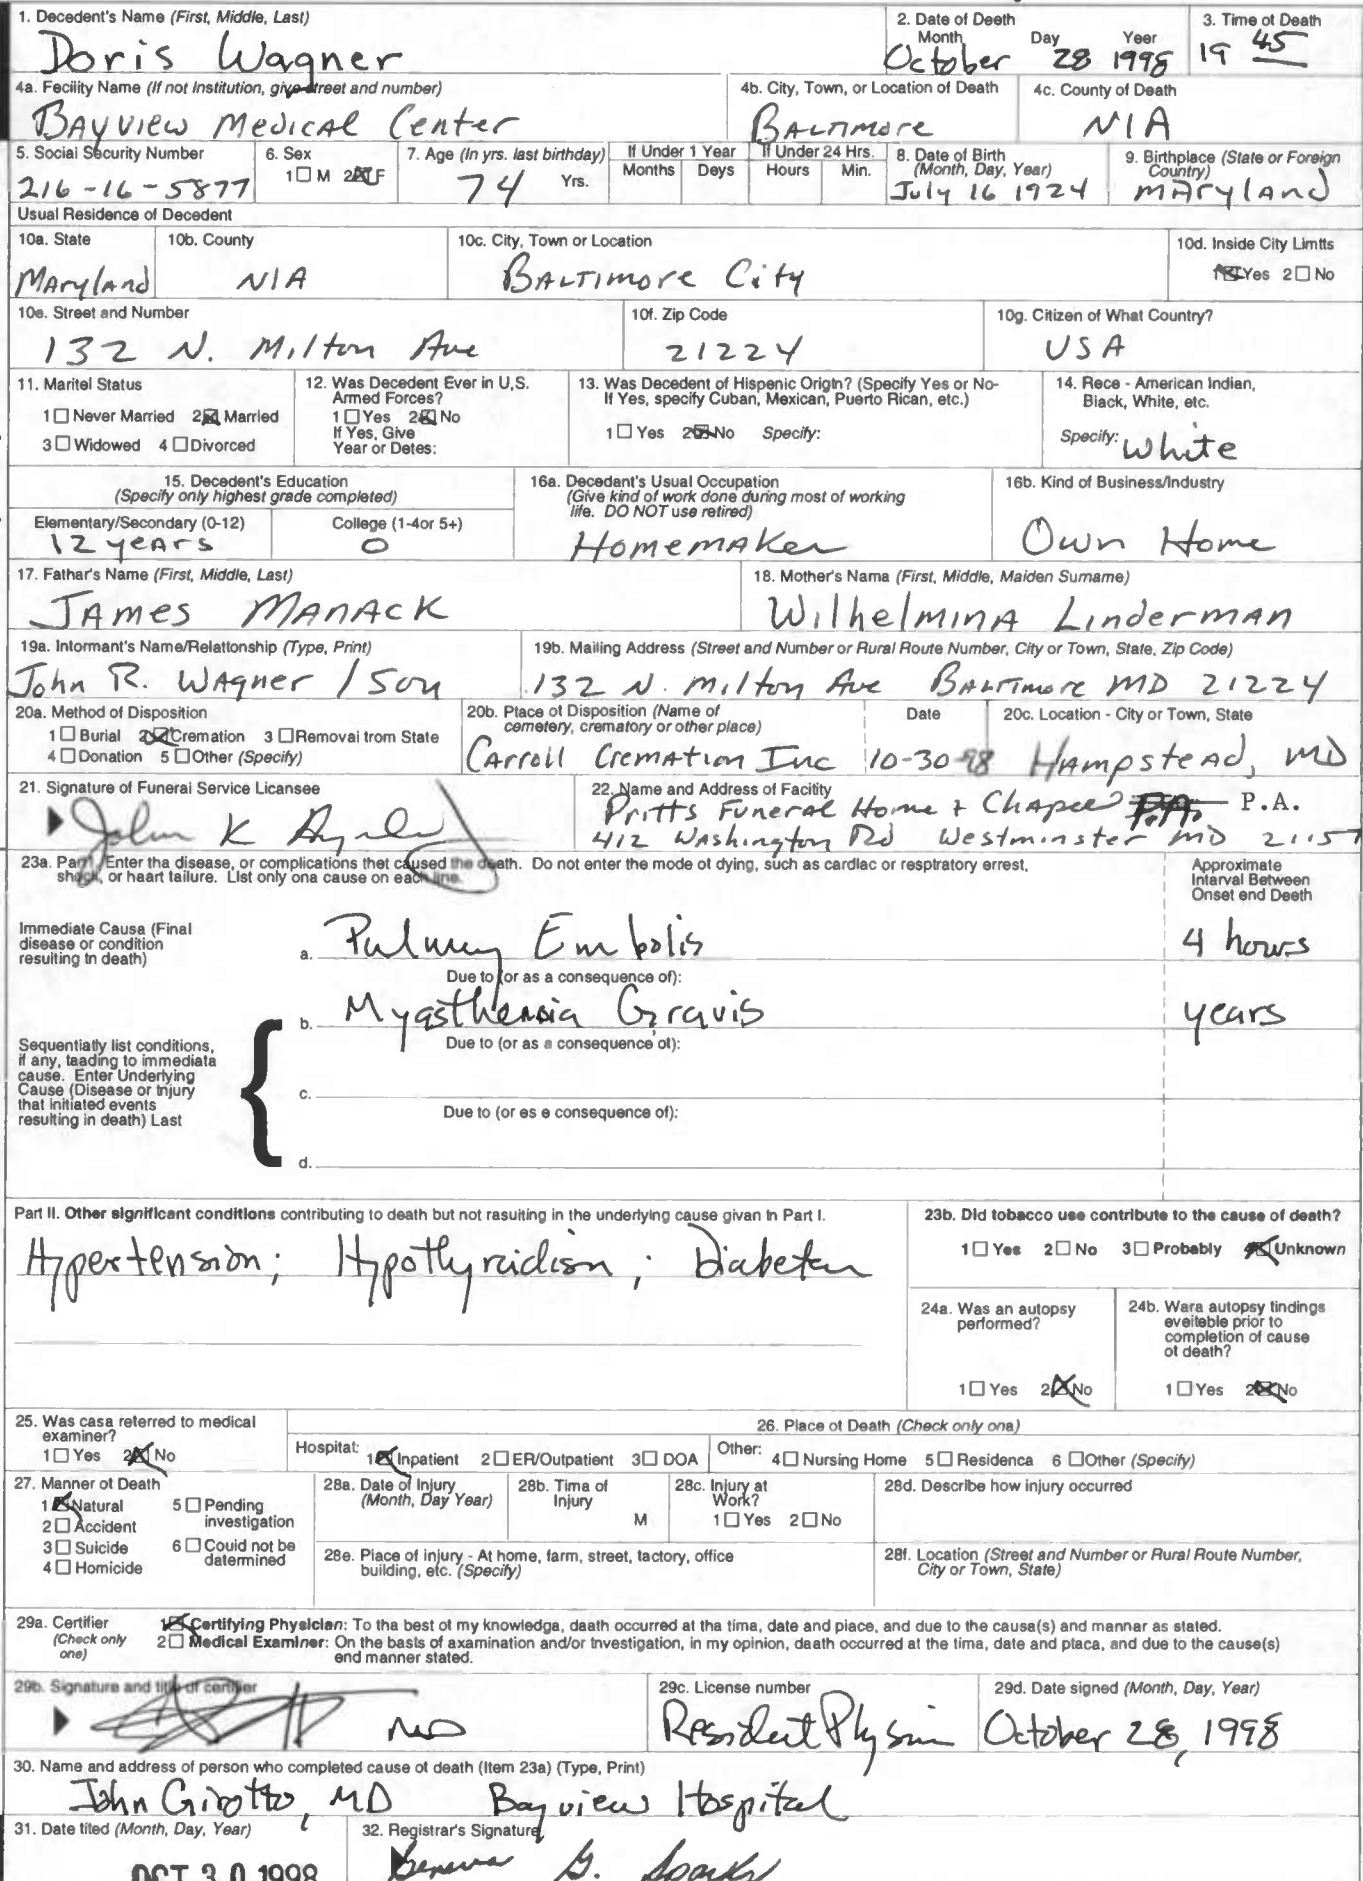 1. Decedent's Name (First, Middle, Last)
Doris Wagner
2. Date of Deeth
Month Day Yeer
October 28 1998
3. Time ot Death
19 45
4a. Fecility Name (If not Institution, give street and number)
BAyview Medical Center
4b. City, Town, or Location of Death
BALTIMore
4c. County of Death
N/A
5. Social Security Number
216-16-5877
6. Sex
1 ☐ M 2 ☒ F
7. Age (In yrs. last birthday)
74 Yrs.
If Under 1 Year
Months Deys
If Under 24 Hrs.
Hours Min.
8. Date of Birth
(Month, Day, Year)
July 16 1924
9. Birthplace (State or Foreign
Country)
MAryland
Usual Residence of Decedent
10a. State
MAryland
10b. County
N/A
10c. City, Town or Location
BALTIMore City
10d. Inside City Limtts
1 ☒ Yes 2 ☐ No
10e. Street and Number
132 N. Milton Ave
10f. Zip Code
21224
10g. Citizen of What Country?
USA
11. Maritel Status
1 ☐ Never Married 2 ☒ Married
3 ☐ Widowed 4 ☐ Divorced
12. Was Decedent Ever in U,S.
Armed Forces?
1 ☐ Yes 2 ☒ No
If Yes, Give
Year or Detes:
13. Was Decedent of Hispenic Origtn? (Specify Yes or No-
If Yes, specify Cuban, Mexican, Puerto Rican, etc.)
1 ☐ Yes 2 ☒ No Specify:
14. Rece - American Indian,
Biack, White, etc.
Specify: White
15. Decedent's Education
(Specify only highest grade completed)
Elementary/Secondary (0-12)
12 years
College (1-4or 5+)
0
16a. Decedant's Usual Occupation
(Give kind of work done during most of working
life. DO NOT use retired)
Homemaker
16b. Kind of Business/Industry
Own Home
17. Fathar's Name (First, Middle, Last)
JAmes MANACK
18. Mother's Nama (First, Middle, Maiden Sumame)
Wilhelmina Linderman
19a. Intormant's Name/Relattonship (Type, Print)
John R. Wagner / Son
19b. Mailing Address (Street and Number or Rural Route Number, City or Town, State, Zip Code)
132 N. Milton Ave BALTIMore MD 21224
20a. Method of Disposition
1 ☐ Burial 2 ☒ Cremation 3 ☐ Removai trom State
4 ☐ Donation 5 ☐ Other (Specify)
20b. Ptace ot Disposition (Name of
cemetery, crematory or other place)
Carroll Cremation Inc
Date
10-30-98
20c. Location - City or Town, State
Hampstead, MD
21. Signature of Funerai Service Licansee
John K
22. Name and Address of Facitity
Pritts Funeral Home + Chapel P.A. P.A.
412 Washington Rd Westminster MD 21157
23a. Part Enter tha disease, or complications thet caused the death. Do not enter the mode ot dying, such as cardlac or resptratory errest,
shock, or haart tailure. List only ona cause on each line.
Approximate
Intarval Between
Onset end Deeth
Immediate Causa (Final
disease or condition
resulting tn death)
a. Pulmury Embolis
4 hours
Due to (or as a consequence of):
b. Myasthenia Gravis
years
Due to (or as a consequence ot):
Sequentialty list conditions,
if any, taading to immediata
cause. Enter Undertying
Cause (Disease or tnjury
that initiated events
resulting in death) Last
c.
Due to (or es e consequence of):
d.
Part II. Other significant conditions contributing to death but not rasuiting in the underlying cause givan tn Part I.
Hypertension; Hypothyroidism; Diabetes
23b. Did tobacco use contribute to the cause of death?
1 ☐ Yes 2 ☐ No 3 ☐ Probably 4 ☒ Unknown
24a. Was an autopsy
performed?
1 ☐ Yes 2 ☒ No
24b. Wara autopsy tindings
eveiteble prior to
completion of cause
ot death?
1 ☐ Yes 2 ☒ No
25. Was casa reterred to medical
examiner?
1 ☐ Yes 2 ☒ No
26. Place ot Death (Check only ona)
Hospitat: 1 ☒ Inpatient 2 ☐ ER/Outpatient 3 ☐ DOA
Other: 4 ☐ Nursing Home 5 ☐ Residenca 6 ☐ Other (Specify)
27. Manner ot Death
1 ☒ Natural 5 ☐ Pending
investigation
2 ☐ Accident
3 ☐ Suicide 6 ☐ Could not be
datermined
4 ☐ Homicide
28a. Date of Injury
(Month, Day Year)
28b. Tima of
Injury
M
28c. Injury at
Work?
1 ☐ Yes 2 ☐ No
28d. Describe how injury occurred
28e. Place of injury - At home, farm, street, tactory, office
building, etc. (Specify)
28f. Location (Street and Number or Rural Route Number,
City or Town, State)
29a. Certifier
(Check only
one)
1 ☒ Certifying Physician: To tha best ot my knowledga, daath occurred at tha tima, date and piace, and due to the causa(s) and mannar as stated.
2 ☐ Medical Examiner: On the basts of axamination and/or tnvestigation, in my opinion, daath occurred at the tima, date and ptaca, and due to the cause(s)
end manner stated.
29b. Signature and title of certifier
MD
29c. License number
Resident Physin
29d. Date signed (Month, Day, Year)
October 28, 1998
30. Name and address of person who completed cause ot death (Item 23a) (Type, Print)
John Girotto, MD Bayview Hospital
31. Date tited (Month, Day, Year)
OCT 30 1998
32. Registrar's Signature
Geneva G. Sparks